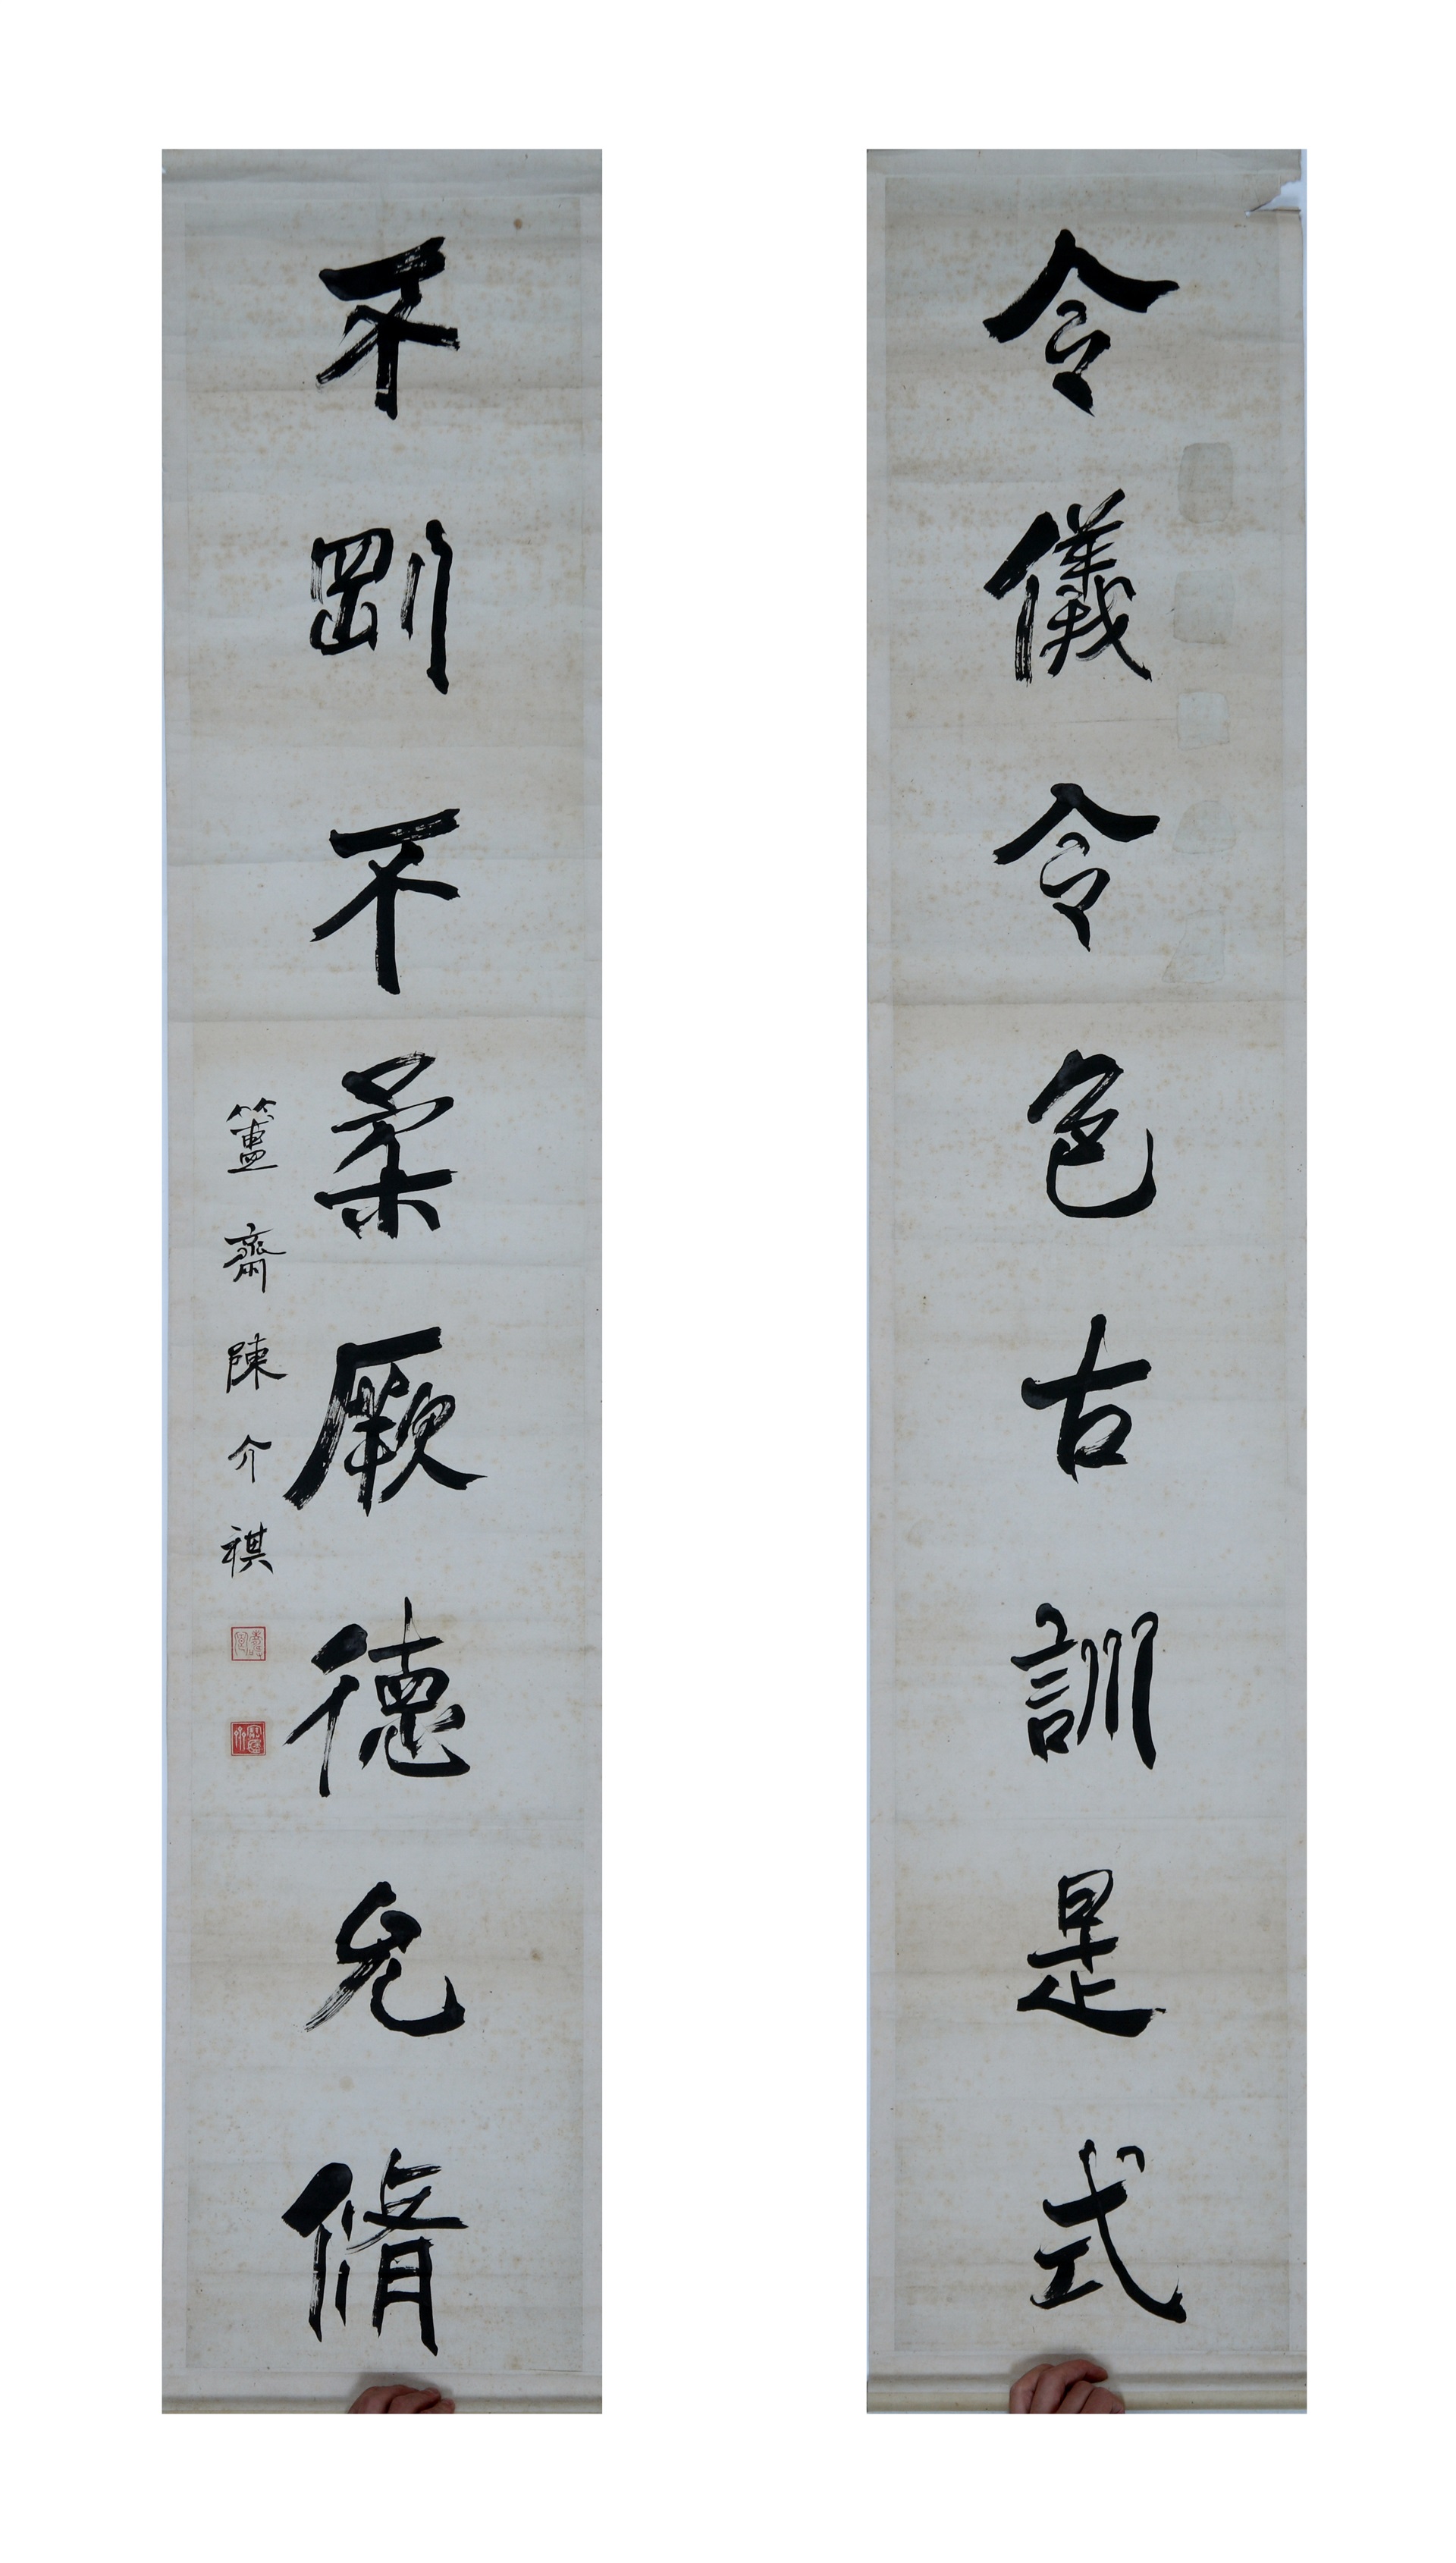 令儀令色古訓是式
不剛不柔厥德允脩
簠齋陳介祺